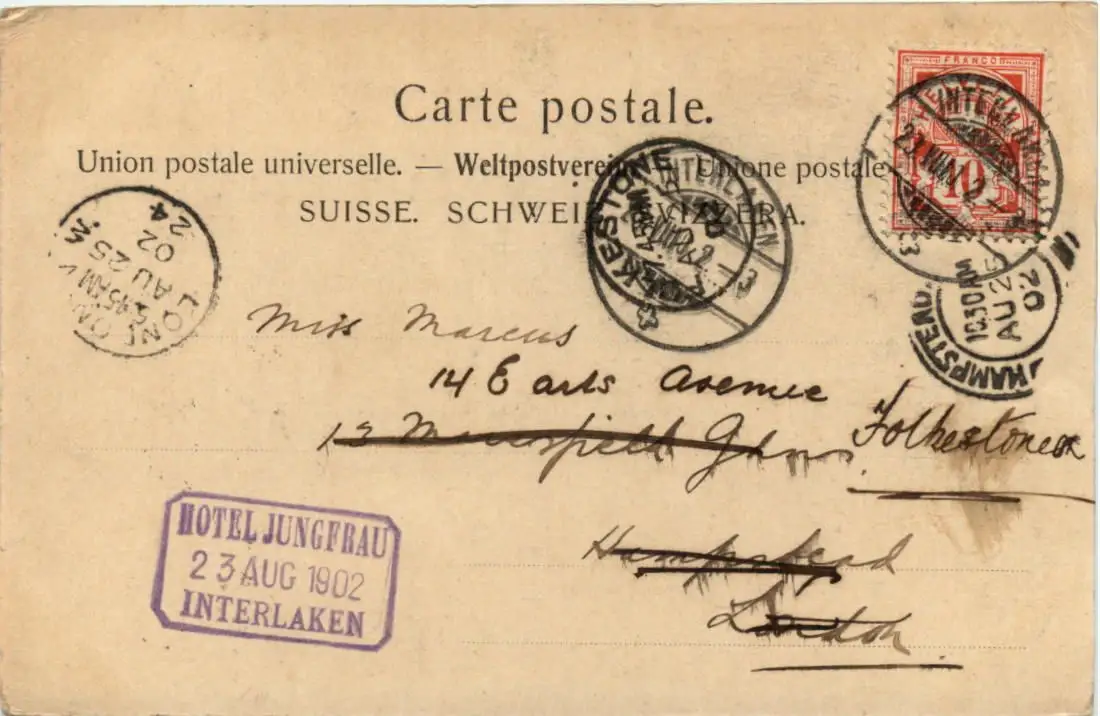 Carte postale.
Union postale universelle. — Weltpostverein. — Unione postale
SUISSE. SCHWEIZ. SVIZZERA.
FRANCO
HELVETIA
10
INTERLAKEN
FOLKESTONE
INTERLAKEN
3
HAMPSTEAD
10 30 AM
AU 25
02
LONDON
AU 25
02
24
Miss Marcus
14 Earls Avenue
Folkestone
Hampstead
London
HOTEL JUNGFRAU
23 AUG 1902
INTERLAKEN